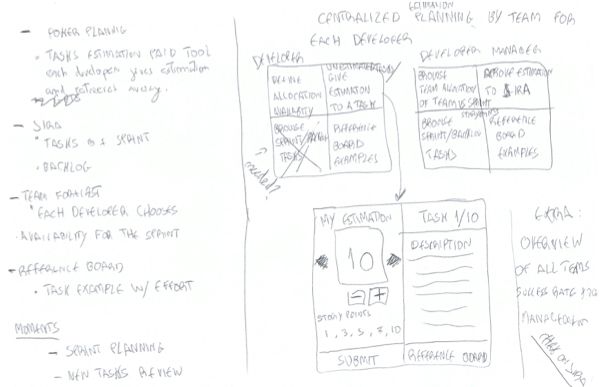 - POKER PLANNING
• TASKS ESTIMATION PAID TOOL
each developer gives estimation
and retrieves average.
- JIRA
• TASKS SPRINT
• BACKLOG
- TEAM FORECAST
• EACH DEVELOPER CHOOSES
AVAILABILITY FOR THE SPRINT
- REFERENCE BOARD
• TASK EXAMPLE W/ EFFORT
MOMENTS
- SPRINT PLANNING
- NEW TASKS REVIEW
ESTIMATION
CENTRALIZED PLANNING BY TEAM FOR
EACH DEVELOPER
DEVELOPER
DEFINE
ALLOCATION
GIVE
ESTIMATION
TO A TASK
BROWSE
SPRINT/
TASKS
REFERENCE
BOARD
EXAMPLES
needed?
DEVELOPER MANAGER
BROWSE
TEAM
OF TEAM SPRINT
APPROVE ESTIMATION
TO JIRA
BROWSE
SPRINT/BACKLOG
TASKS
REFERENCE
BOARD
EXAMPLES
MY ESTIMATION
10
- +
STORY POINTS
1, 3, 5, 7, 10
SUBMIT
TASK 1/10
DESCRIPTION
REFERENCE BOARD
EXTRA:
OVERVIEW
OF ALL TEAMS
SUCCESS RATE
MANAGEMENT